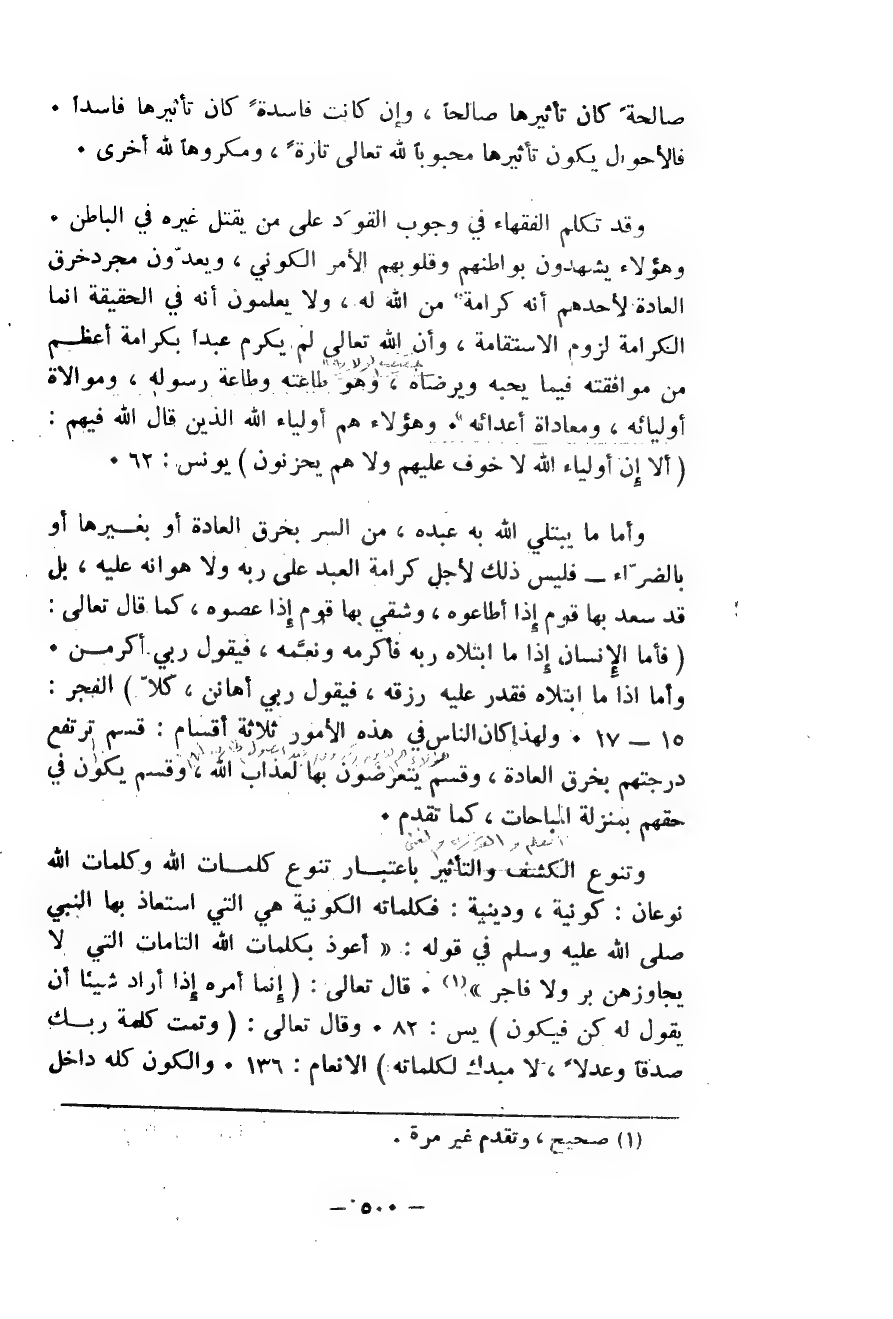 صالحة ً كان تأثيرها صالحاً ، وإن كانت فاسدة ً كان تأثيرها فاسداً •
فالأحوال يكون تأثيرها محبوباً لله تعالى تارة ً ، ومكروهاً لله أخرى •
وقد تكلم الفقهاء في وجوب القوَد على من يقتل غيره في الباطن •
وهؤلاء يشهدون بواطنهم وقلوبهم الأمر الكوني ، ويعدّون مجرد خرق
العادة لأحدهم أنه كرامة ً من الله له ، ولا يعلمون أنه في الحقيقة انما
الكرامة لزوم الاستقامة ، وأن الله تعالى لم يكرم عبداً بكرامة أعظم
من موافقته فيما يحبه ويرضاه ، وهو طاعته وطاعة رسوله ، وموالاة
أوليائه ، ومعاداة أعدائه • وهؤلاء هم أولياء الله الذين قال الله فيهم :
( ألا إن أولياء الله لا خوف عليهم ولا هم يحزنون ) يونس : ٦٢ •
وأما ما يبتلي الله به عبده ، من السر بخرق العادة أو بغيرها أو
بالضرّاء – فليس ذلك لأجل كرامة العبد على ربه ولا هوانه عليه ، بل
قد سعد بها قوم إذا أطاعوه ، وشقي بها قوم إذا عصوه ، كما قال تعالى :
( فأما الإنسان إذا ما ابتلاه ربه فأكرمه ونعَّمه ، فيقول ربي أكرمن •
وأما اذا ما ابتلاه فقدر عليه رزقه ، فيقول ربي أهانن ، كلاّ ) الفجر :
١٥ – ١٧ • ولهذا كان الناس في هذه الأمور ثلاثة أقسام : قسم ترتفع
درجتهم بخرق العادة ، وقسم يتعرضون بها لعذاب الله ، وقسم يكون في
حقهم بمنزلة المباحات ، كما تقدم •
وتنوع الكشف والتأثير باعتبار تنوع كلمات الله وكلمات الله
نوعان : كونية ، ودينية : فكلماته الكونية هي التي استعاذ بها النبي
صلى الله عليه وسلم في قوله : « أعوذ بكلمات الله التامات التي لا
يجاوزهن بر ولا فاجر »(١) • قال تعالى : ( إنما أمره إذا أراد شيئا أن
يقول له كن فيكون ) يس : ٨٢ • وقال تعالى : ( وتمت كلمة ربك
صدقاً وعدلا ً ، لا مبدل لكلماته ) الانعام : ١٣٦ • والكون كله داخل
(١) صحيح ، وتقدم غير مرة .
– ٥٠٠ –